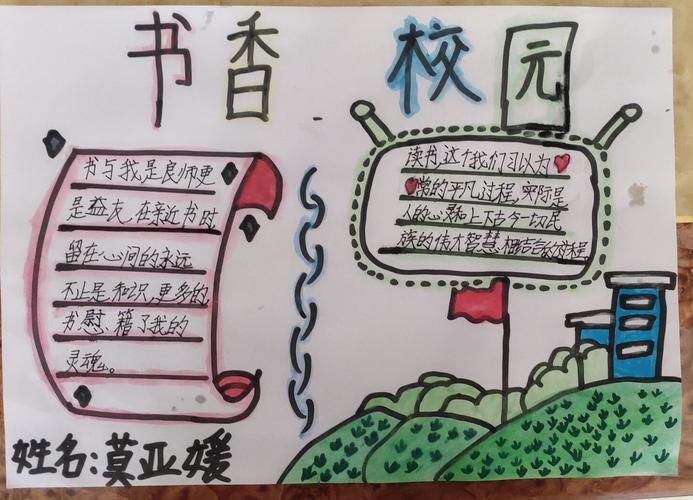 书香 校园
书与我,是良师更
是益友,在亲近书时
留在心间的永远
不止是知识,更多的
书慰、籍了我的
灵魂。
读书,这个我们习以为
常的平凡过程,实际是
人的心灵和上下古今一切民
族的伟大智慧相结合的过程
姓名:莫亚媛